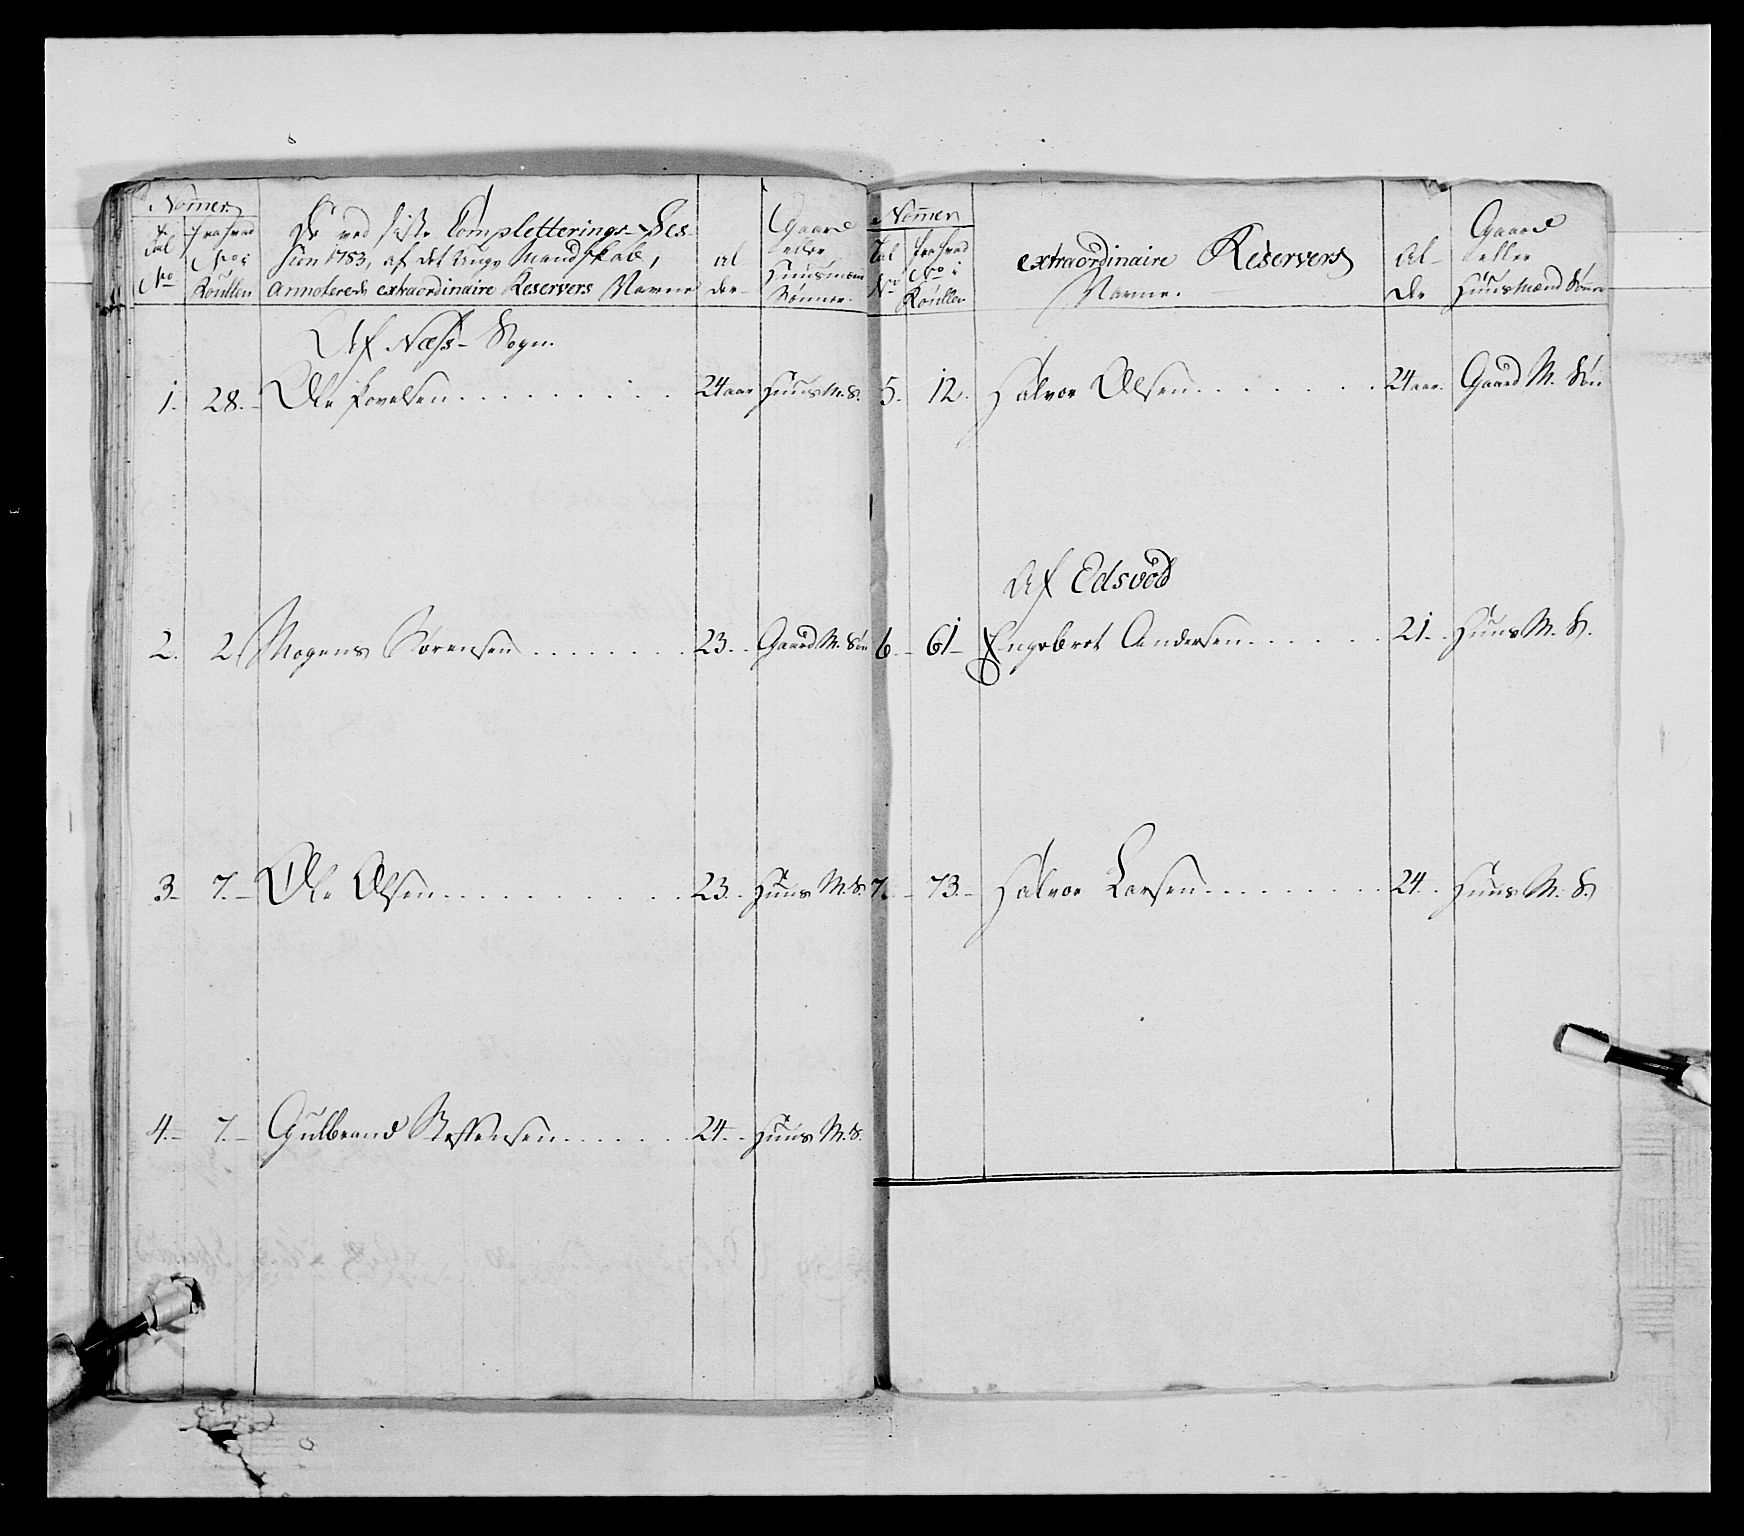 Nomer
Tal No
fra hvad No i Roullen
De ved siste Completterings-Ses-
sion 1783, af det unge Mandskab,
annoterede extraordinaire Reservers Navne
Al
der
Gaard
eller
Huusmænd
Sønner
Af Næss Sogn
1. 28. Ole Povelsen 24 aar Huus M. S.
2. 2 Mogens Sørensen 23. Gaard M. Søn
3. 7. Ole Olsen 23. Huus M. S.
4. 7. Gulbrand Steffensen 24. Huus M. S.
Nomer
Tal No
fra hvad No i Roullen
extraordinaire Reservers
Navne.
Al-
der
Gaard
eller
Huusmænd Sønner
5. 12. Halvor Olsen 24 aar. Gaard M. Søn
Af Edsvold
6. 61 Engebret Andersen 21. Huus M. S.
7. 73. Halvor Larsen 24. Huus M. S.